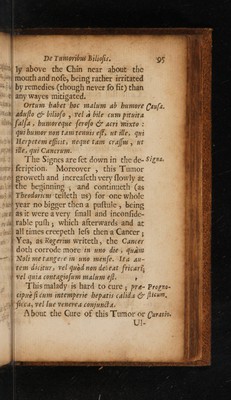 De Tumoribus Biliosis. 95
ly above the Chin near about the
mouth and nose, being rather irritated
by remedies (though never so fit) than
any wayes mitigated.
Ortum habet hoc malum ab humore Causa.
adusto & bilioso , vel à bile cum pituita
salsa , humoreque seroso & acri mixto :
qui humor non tam tenuis est, ut ille, qui
Herpetem efficit: neque tam crassus , ut
ille, qui Cancrum.
The Signes are set down in the de- Signa.
scription. Moreover , this Tumor
groweth and increaseth very slowly at
the beginning ; and continueth (as
Theodoricus telleth us) for one whole
year no bigger then a pustule , being
as it were a very small and inconside-
rable push ; which afterwards and at
all times creepeth less then a Cancer ;
Yea, as Rogerius writeth , the Cancer
doth corrode more in uno die , quàm
Noli me tangere in uno mense. Ita au-
tem dicitur, vel quòd non debeat fricari,
vel quia contagiosum malum est.
This malady is hard to cure ; præ- Progno-
cipuè si cum intemperie hepatis calida & sticum.
sicca, vel lue venerea conjuncta.
About the Cure of this Tumor or Curatio.
Ul-